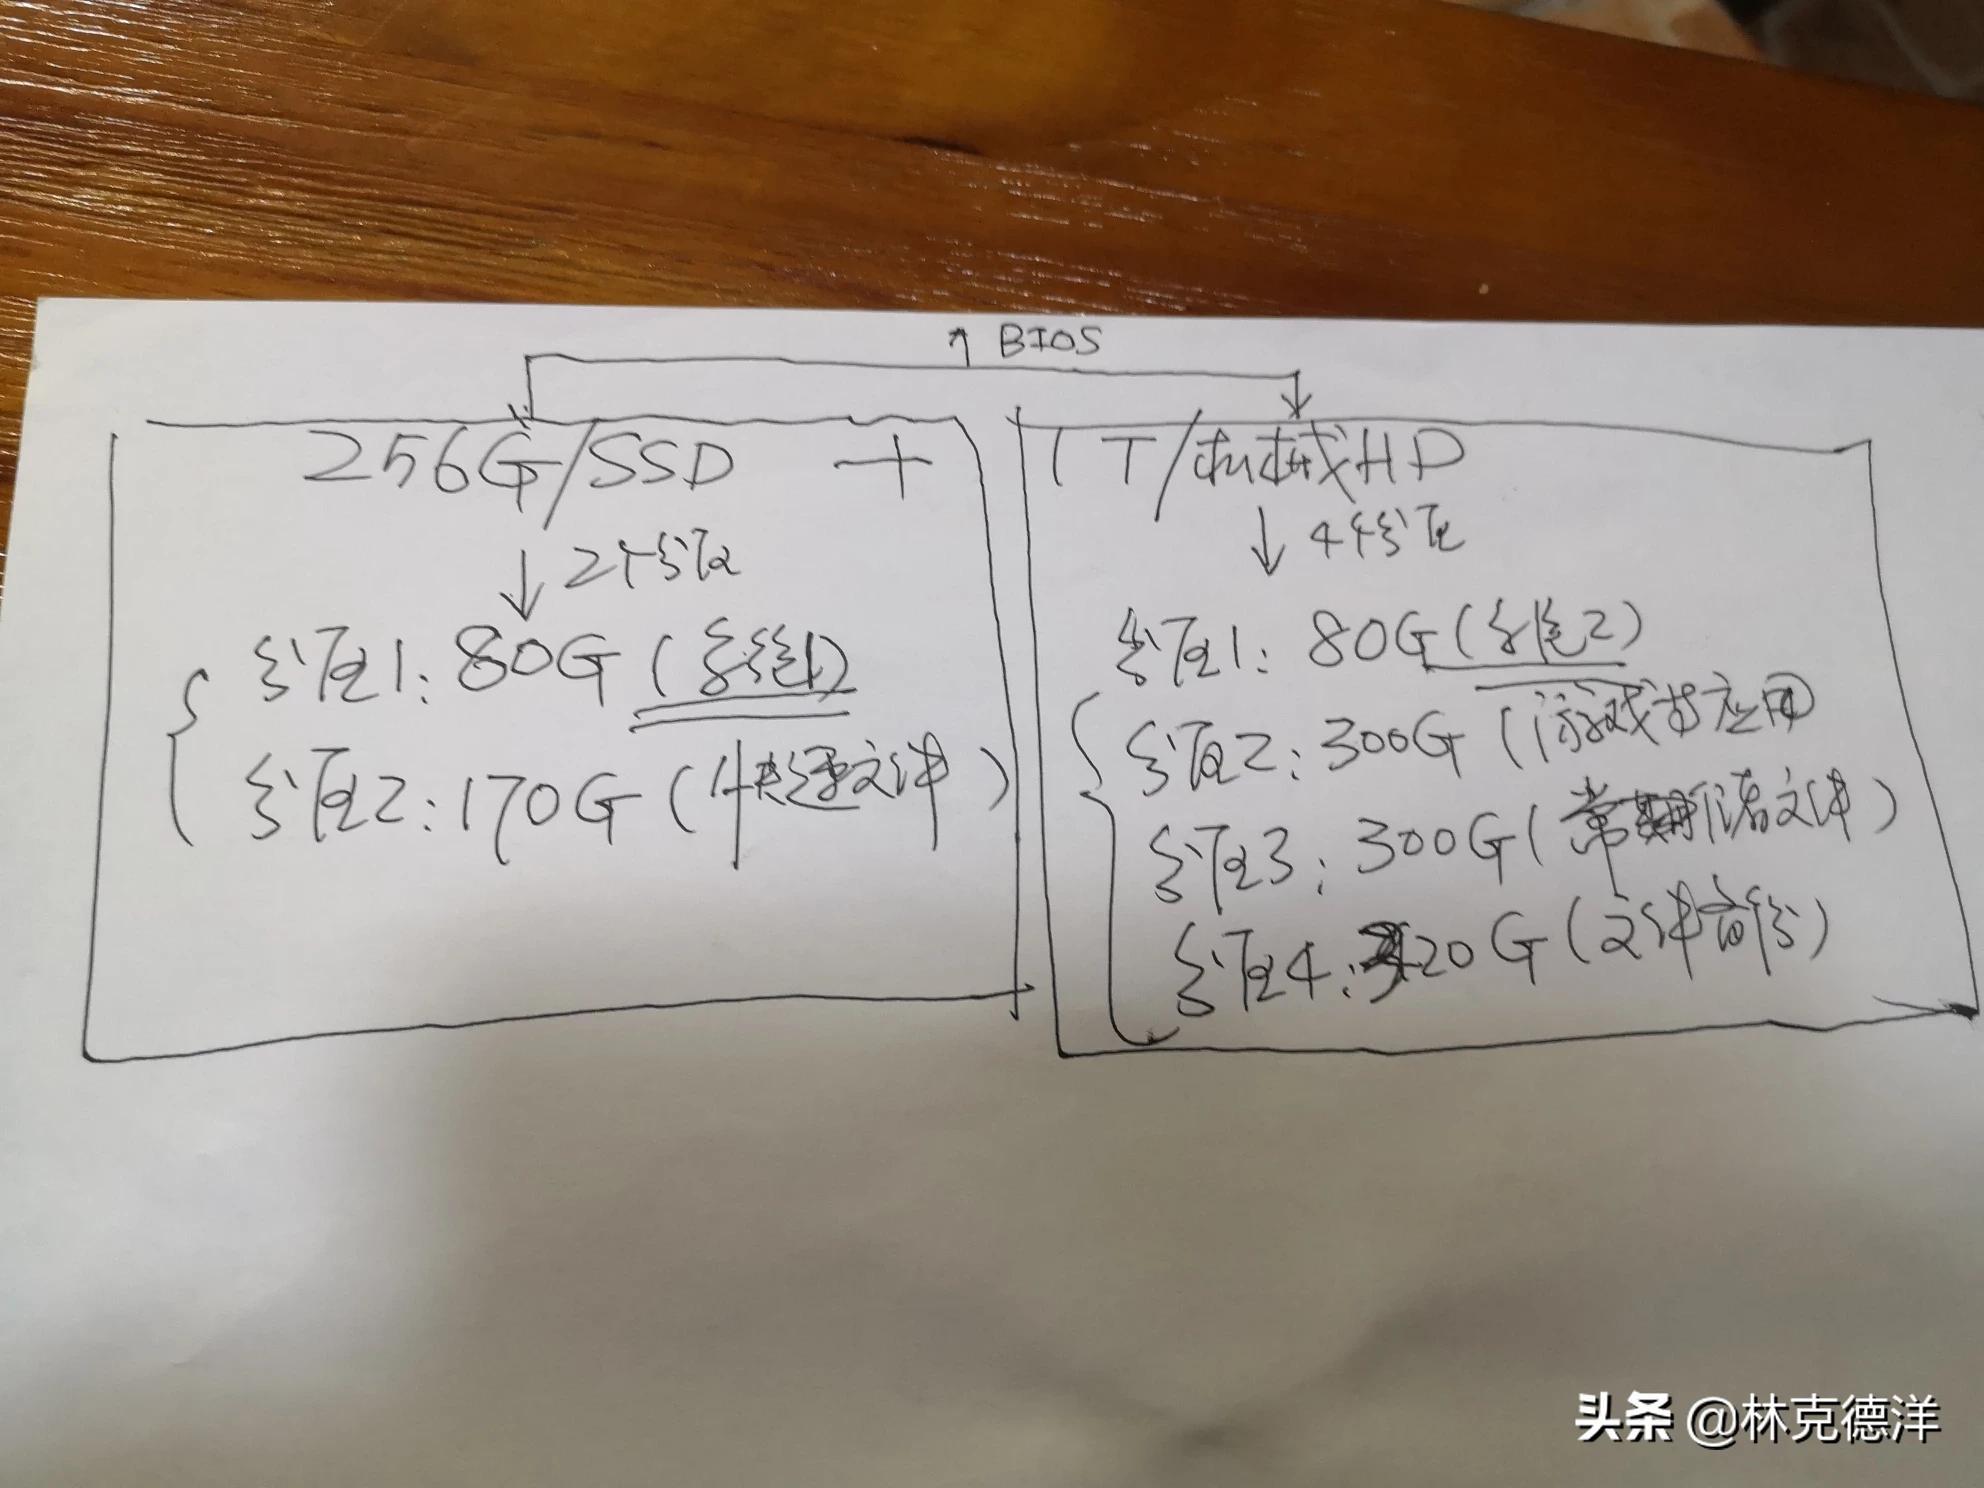 BIOS
256G/SSD +
2个分区
分区1: 80G (系统1)
分区2: 170G (快速文件)
1T/机械HD
4个分区
分区1: 80G (系统2)
分区2: 300G (游戏与应用)
分区3: 300G (常期储存文件)
分区4: 320G (文件备份)
头条 @林克德洋